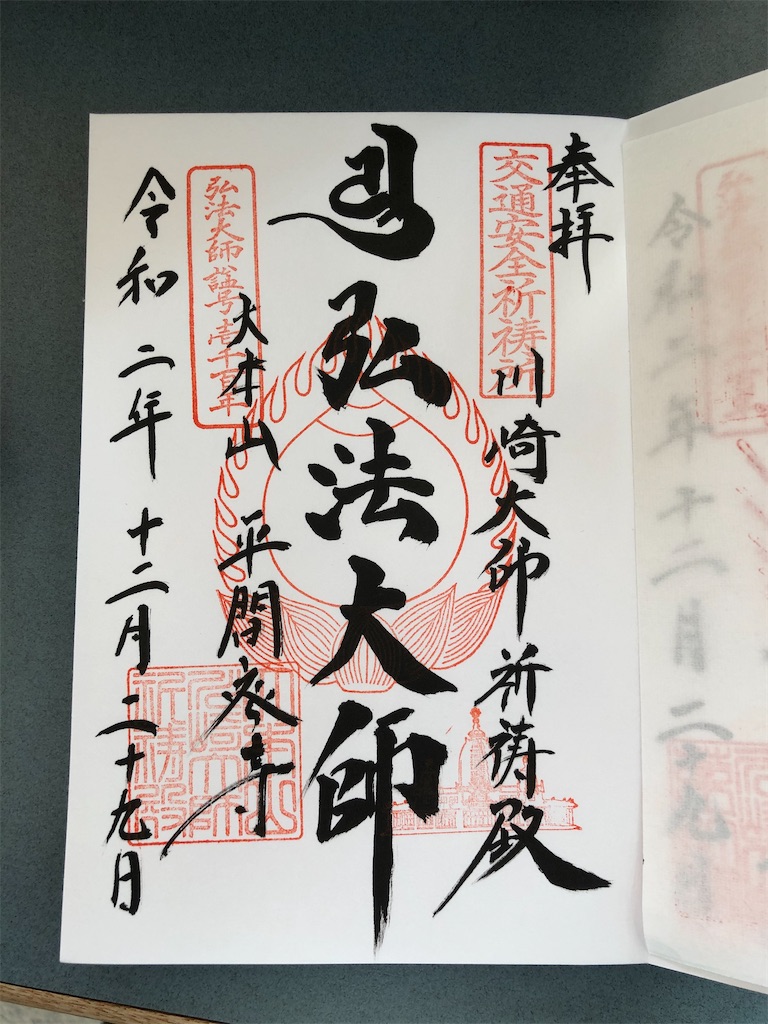 奉拝
交通安全祈祷所
川崎大師 祈祷殿
弘法大師
大本山 平間寺
弘法大師諡号壱千百年
令和二年 十二月 二十九日